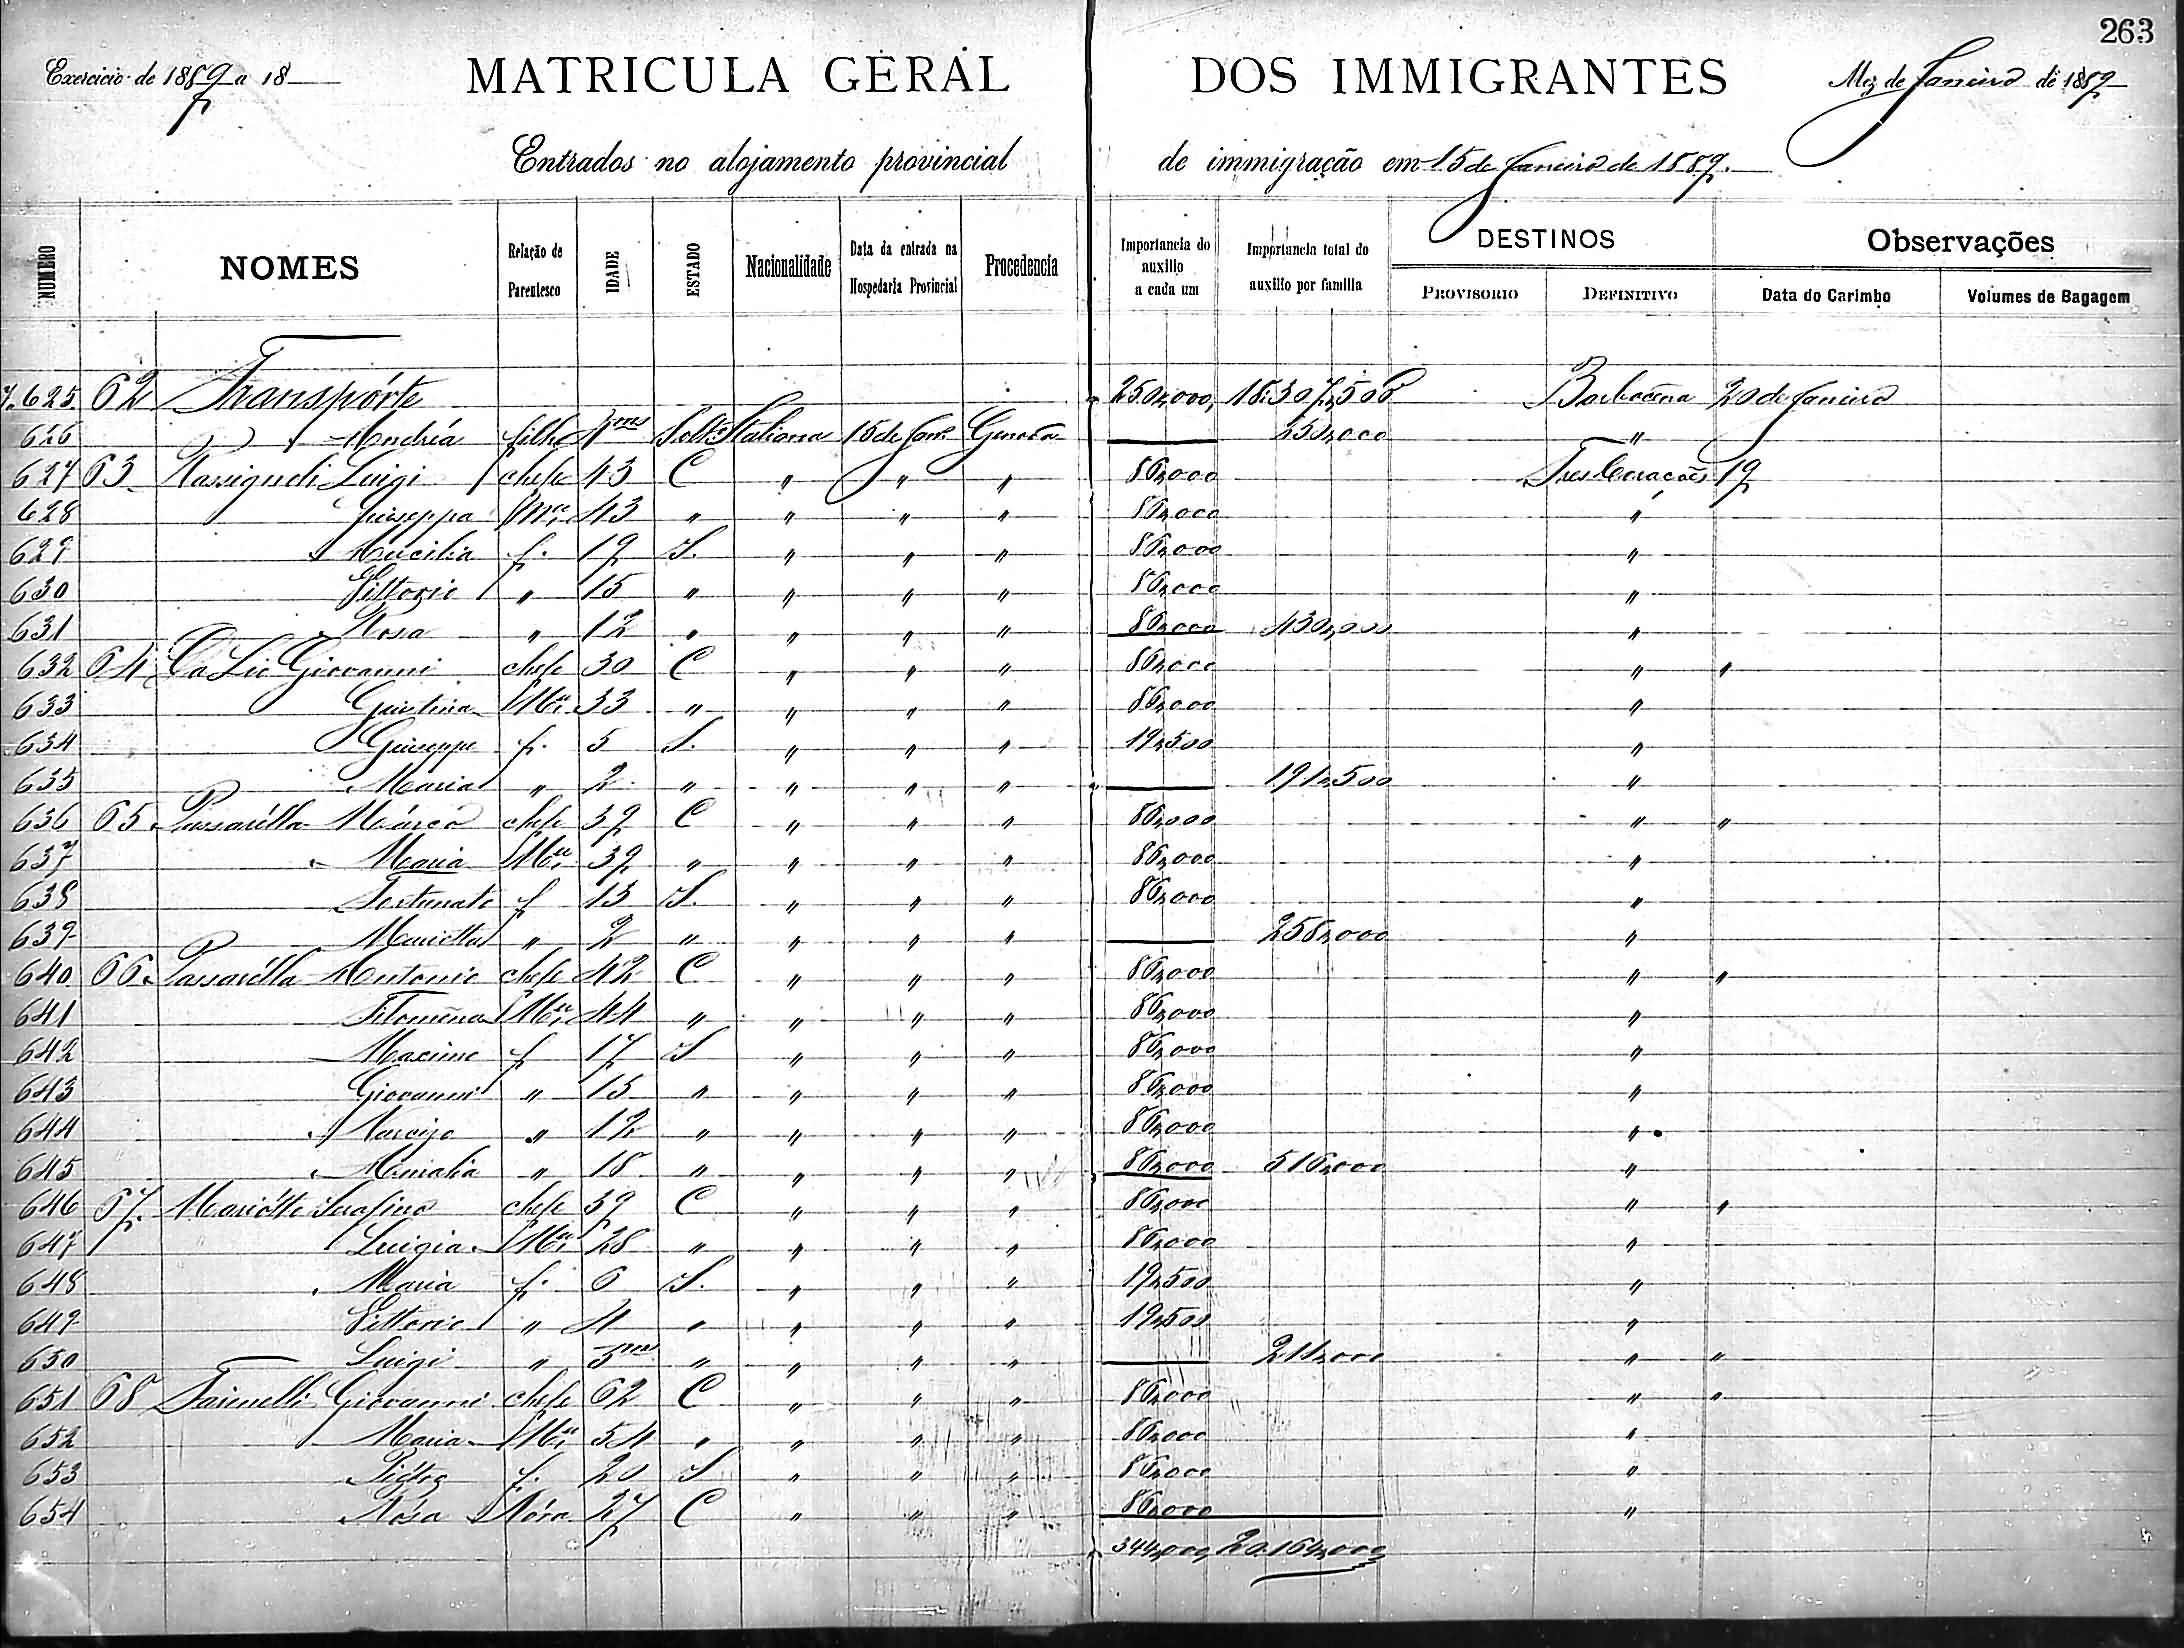 263
Exercicio de 1889 a 18
MATRICULA GERAL DOS IMMIGRANTES
Mez de Janeiro de 1889
Entrados no alojamento provincial de immigração em 15 de Janeiro de 1889.
NUMERO NOMES Relação de Parentesco IDADE ESTADO Nacionalidade Data da entrada na Hospedaria Provincial Procedencia Importancia do auxilio a cada um Importancia total do auxilio por familia DESTINOS PROVISORIO DEFINITIVO Observações Data do Carimbo Volumes de Bagagem
625 62 Transpórte 18:307,500 Barbacena 20 de Janeiro
626 Andréa filho Solt. Italiana 15 de Jan. Genova "
627 63 Luigi chefe 43 C " " " 86,000 Tres Corações 19
628 Giuseppa Mer. 43 " " " " 86,000 "
629 f. 19 S. " " " 86,000 "
630 Vittorio " 15 " " " " 86,000 "
631 Rosa " 12 " " " " 86,000 430,000 "
632 64 Giovanni chefe 30 C " " " 86,000 " "
633 Giustina Mer. 33 " " " " 86,000 "
634 Giuseppe f. 5 S. " " " 19,500 "
635 Maria " 2 " " " " 191,500 "
636 65 Passarélla Márco chefe 39 C " " " 86,000 " "
637 Maria Mer. 39 " " " " 86,000 "
638 Fortunato f 13 S. " " " 86,000 "
639 Marietta " 2 " " " " 258,000 "
640 66 Passarélla Antonio chefe 42 C " " " 86,000 " "
641 Filomena Mer. 44 " " " " 86,000 "
642 f 17 S " " " 86,000 "
643 Giovanni " 15 " " " " 86,000 "
644 Narcizo " 12 " " " " 86,000 "
645 " 18 " " " " 86,000 516,000 "
646 67 Mariótto Serafino chefe 39 C " " " 86,000 " "
647 Luigia Mer. 28 " " " " 86,000 "
648 Maria f. 6 S. " " " 19,500 "
649 Vittorio " 4 " " " " 19,500 "
650 Luigi " " " " " 211,000 " "
651 68 Giovanni chefe 62 C " " " 86,000 " "
652 Maria Mer. 54 " " " " 86,000 "
653 f. 20 S " " " 86,000 "
654 Rósa Nóra 27 C " " " 86,000 "
344,000 20:164,000